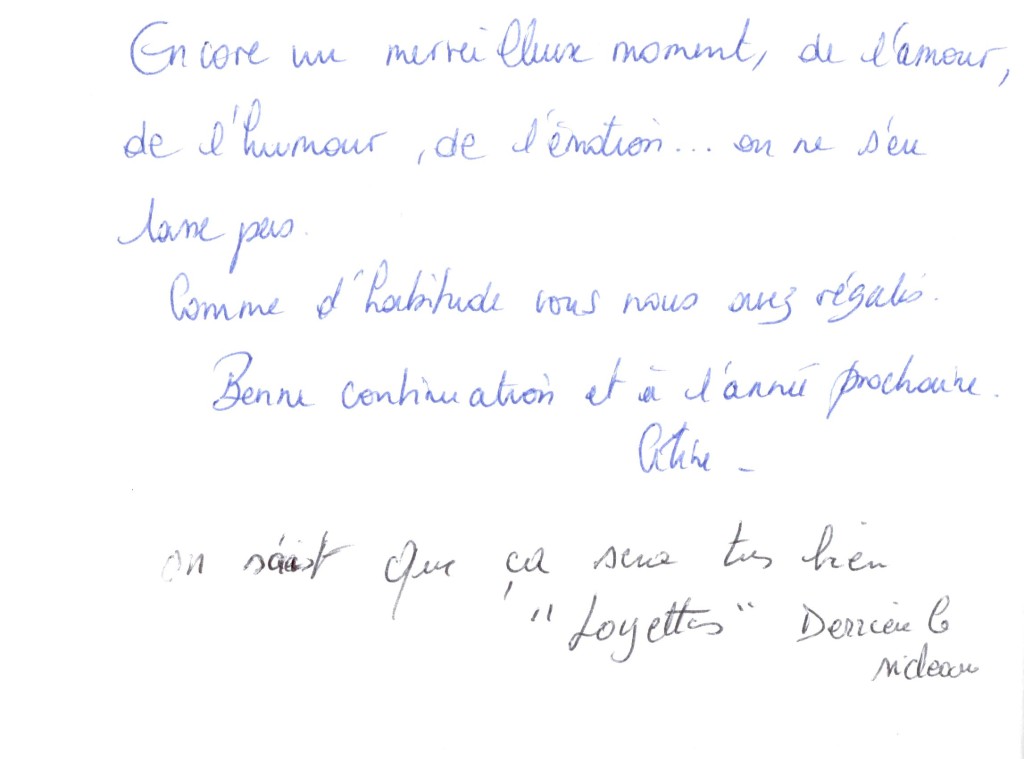 Encore un merveilleux moment, de l'amour,
de l'humour, de l'émotion... on ne s'en
lasse pas.
Comme d'habitude vous nous avez régalés.
Bonne continuation et à l'année prochaine.
on sait que ça sera très bien
"Loyettes" Derrière le
rideau